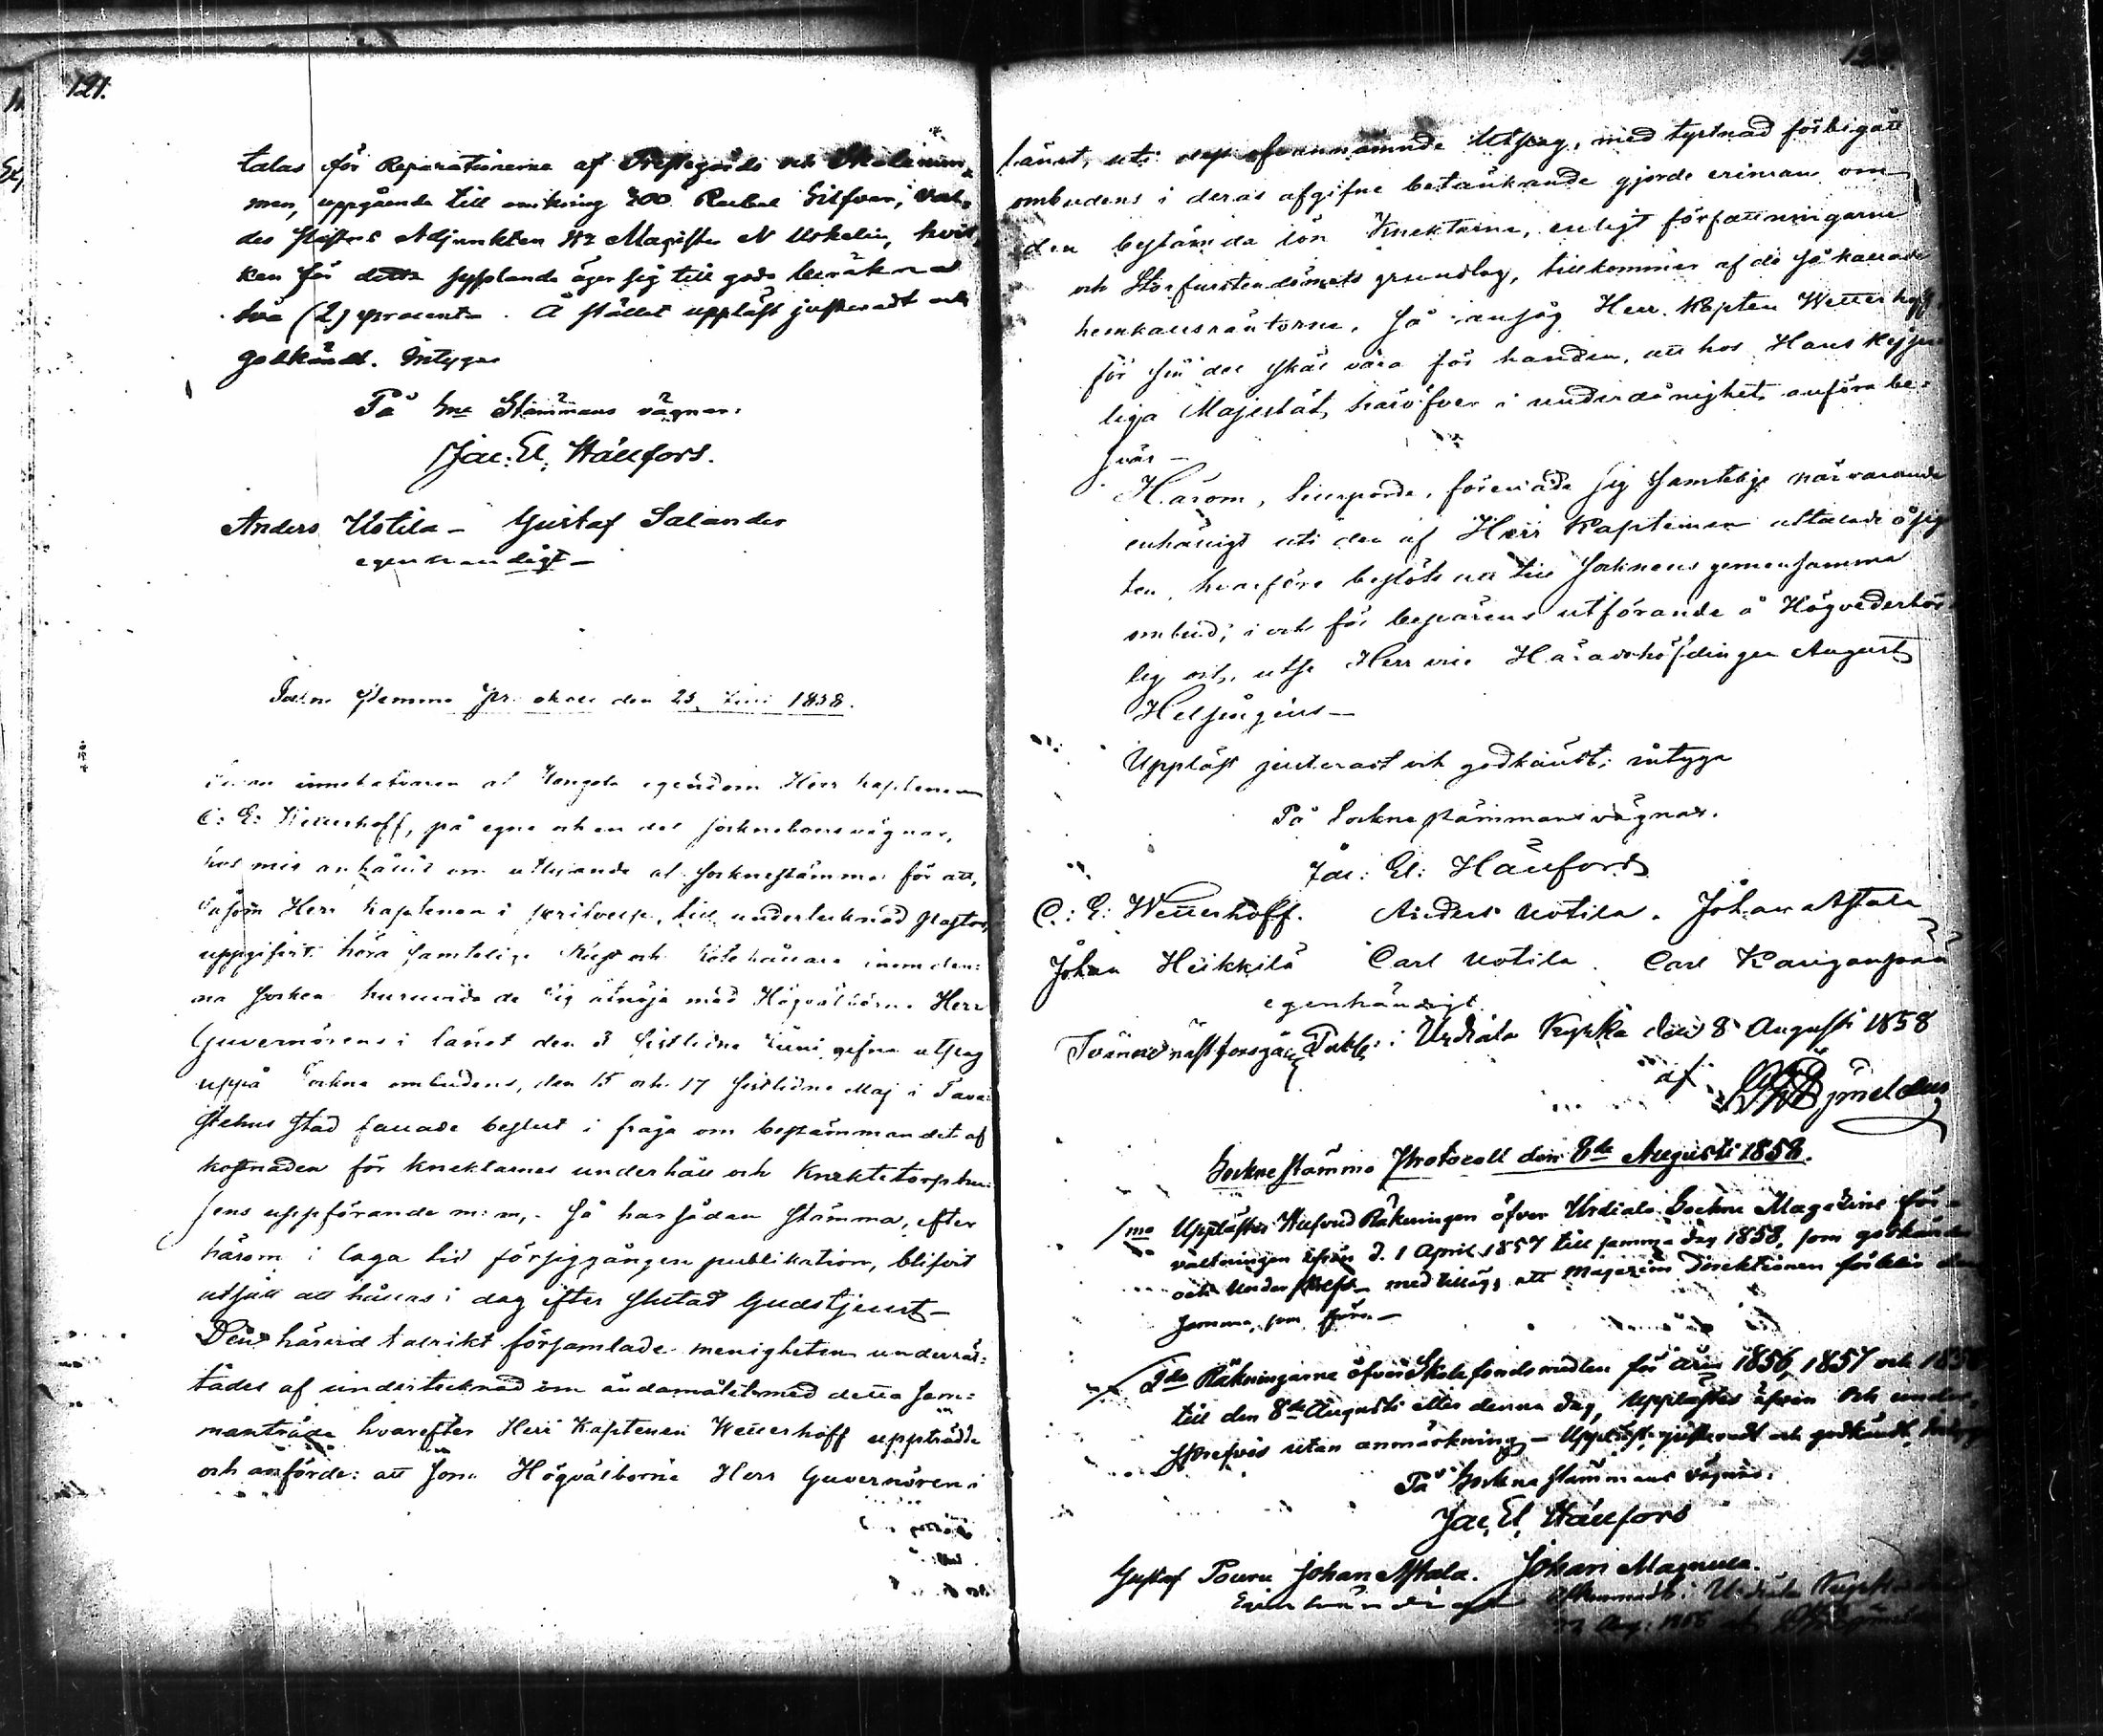 121.
talas för Reparationerna af Prestegårds och Skolerum,
men, uppgående till omkring 300 Rubel Silfver, val,
des Pastors Adjunkten Hr Magister N Uskelin, hvil,
ken för detta sysslande äger sig till godo beräkna
två (2) procent. Å stället uppläst justeradt och
godkändt. Intygar
På Sne Stämmans vägnar:
Jac: El: Hällfors.
Anders Uotila - Gustaf Salander
egenhändigt -
Sockne stemmo Protokoll den 25 Juni 1858.
innehafvaren af egendom Herr Kaptenen
C: E: Wetterhoff, på egna och en del Sockneboers vägnar,
hos mig anhållit om utlysande af Socknestämma för att,
såsom Herr Kaptenen i skrifvelse, till undertecknad Pastor,
uppgifvit höra samtelige Rust och Rotehållare inom den:
na Socken huruvida de sig åtnöja med Högvälborne Herr
Guvernörens i länet den 3 sistledne Juni gifna utslag
uppå Sockne ombudens, den 15 och 17 sistledne Maj i Tava
stehus stad fattade beslut i fråga om bestämmandet af
kostnaden för knektarnes underhåll och Knektetorp hu:
sens uppförande m: m,. Så har sådan Stämma, efter
härom i laga tid försiggången publikation, blifvit
utsatt att hållas i dag efter slutad Gudstjenst -
Den härvid talrikt församlade menigheten underrät:
tades af undertecknad om ändamålet med detta sam:
manträde hvarefter Herr Kaptenen Wetterhoff uppträdde
och anförde: att som Högvälborne Herr Guvernören i
länet, uti dess ofvannämnde Utslag, med tystnad förbigått
ombudens i deras afgifne betänkande gjorde erinran om
den bestämda lön Knektarne, enligt författningarne
och Storfurstendömets grundlag, tillkommer af de så kallade
hemkallsräntorne, så ansåg Herr Kapten Wetterhoff,
för sin del skäl vara för handen, att hos Hans Kejser
liga Majestät, häröfver i underdånighet anföra be:
svär -
Härom, tillsporde, förenade sig samtelige närvarande
enhälligt uti den af Herr Kaptenen uttalade åsig
ten, hvarföre beslöts att till Socknens gemensamma
ombud, i och för besvärens utförande å Högvederbör
lig ort, utse Herr vice Häradshöfdingen August
Helsingius -
Uppläst justerat och godkändt; intyga
På Sockne stämmans vägnar.
Jac: El: Hällfors
C: E: Wetterhoff. Anders Uotila. Johan Astala
Johan Heikkilä Carl Uotila. Carl Kariganpää
egenhändigt
Tvänne näst föregå: Publ: i Urdiala Kyrka den 8 Augusti 1858
af
Socknestämmo Protocoll den 8de Augusti 1858.
1mo Upplästes Hufvud Räkningen öfver Urdiala Sockne Magazins för-
valtningen ifrån d. 1 April 1857 till samma dag 1858, som godkändes
och Underskrefs - med tillägg att Magazins Direktionen förblir den
samma, som förr. -
2do Räkningarne öfver Skolefonds medlen för åren 1856, 1857 och 1858
till den 8de Augusti eller denna dag, upplästes äfven och under,
skrefvos utan anmärkning - Uppläst, justeradt och godkändt, intyga
På Sockne stämmans vägnar.
Jac. El. Hällfors
Gustaf Pouru Johan Astala. Johan Magnula.
Egenhändigt Afkunnadt i Urdiala Kyrka den
22 Aug: 1858 af